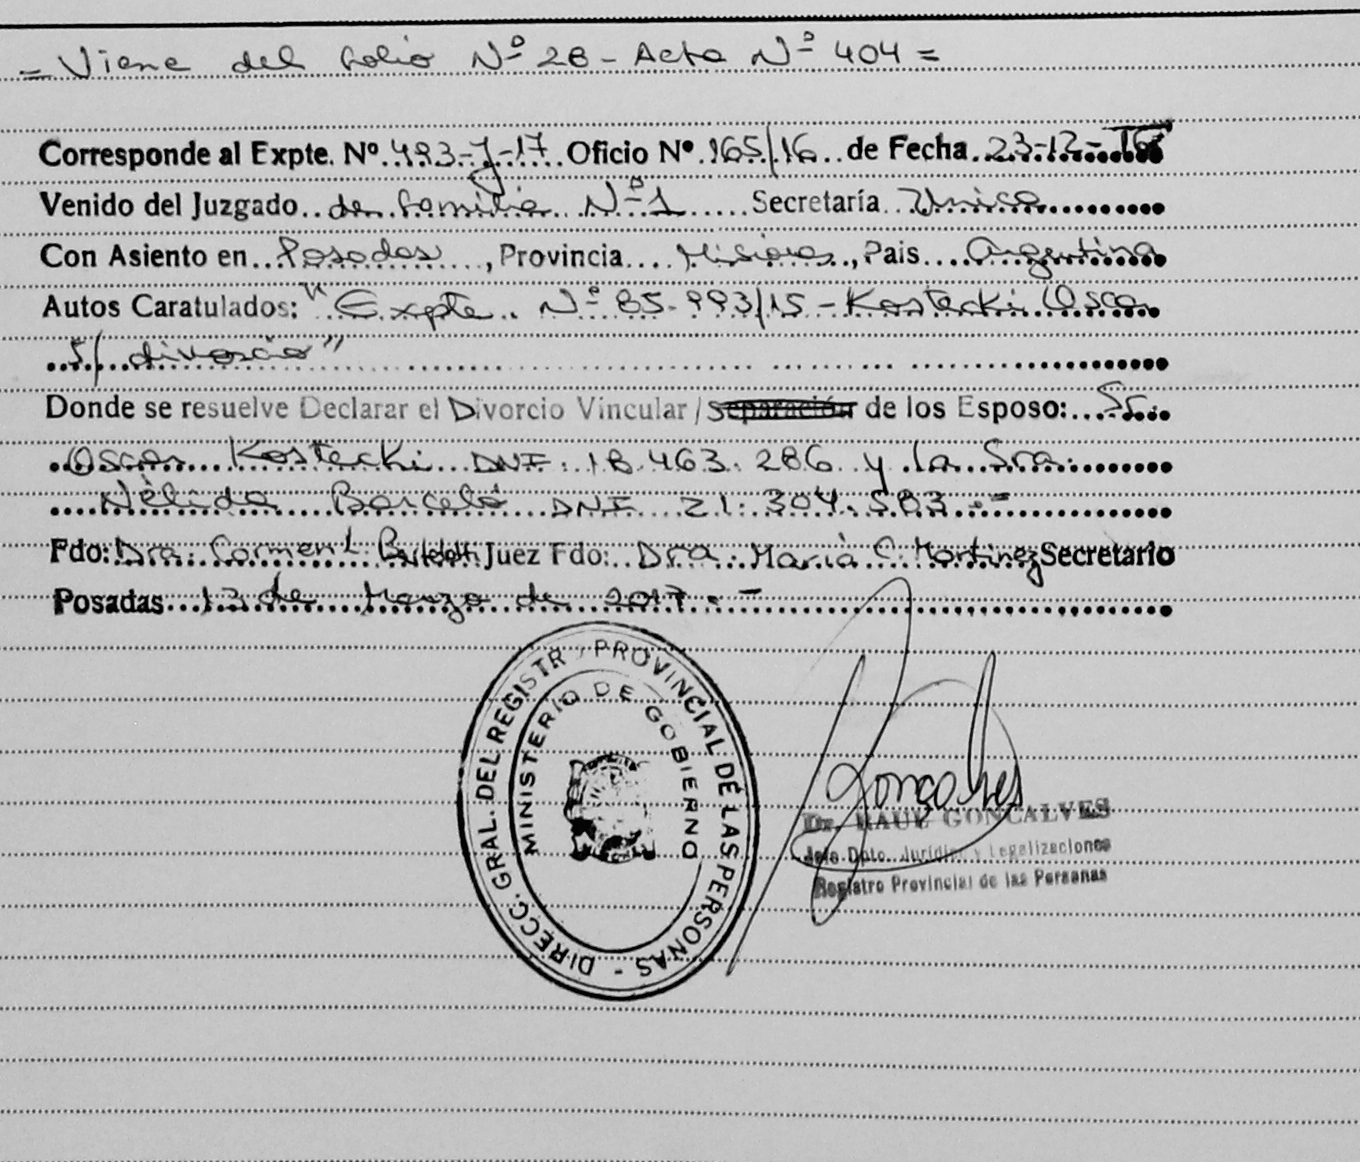 = Viene del folio Nº 28 - Acta Nº 404 =
Corresponde al Expte. Nº 493-J-17 Oficio Nº 165/16 de Fecha 23-12-16
Venido del Juzgado de familia Nº 1 Secretaría Unica
Con Asiento en Posadas, Provincia Misiones, Pais Argentina
Autos Caratulados: "Expte. Nº 85.993/15 - Kostecki Oscar
S/ divorcio"
Donde se resuelve Declarar el Divorcio Vincular / Separación de los Esposo: Sr.
Oscar Kostecki DNI: 18.463.286 y la Sra.
Nèlida Barceló DNI 21.304.583.-
Fdo: Dra. Juez Fdo: Dra. Marìa C. Martinez Secretario
Posadas 13 de Marzo de 2017.-
DIRECC. GRAL. DEL REGISTR PROVINCIAL DE LAS PERSONAS -
MINISTERIO DE GOBIERNO
Goncalves
Dr. RAUL GONCALVES
Jefe Dpto. Jurídico y Legalizaciones
Registro Provincial de las Personas